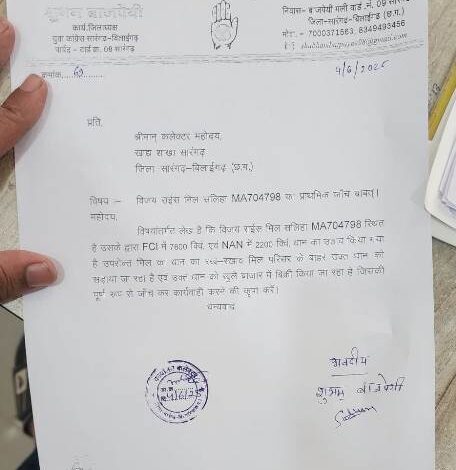 शुभम बाजपेयी
कार्य.जिलाध्यक्ष
युवा कांग्रेस सारंगढ़-बिलाईगढ़
पार्षद - वार्ड क्रं. 09 सारंगढ़
निवास- बाजपेयी गली वार्ड .नं. 09
जिला-सारंगढ़-बिलाईगढ़ (छ.ग.)
मोबा. - 7000371563, 8349493456
क्रमांक..... 69
4/6/2025
प्रति,
श्रीमान् कलेक्टर महोदय,
खाद्य शाखा सारंगढ़
जिला सारंगढ़-बिलाईगढ़ (छ.ग.)
विषय :- विजय राईस मिल सलिहा MA704798 का प्राथमिक जाँच बाबत्।
महोदय,
विषयांतर्गत लेख है कि विजय राईस मिल सलिहा MA704798 स्थित
है उसके द्वारा FCI में 7600 क्विं. एवं NAN में 2200 क्विं. धान का उठाव किया गया
है उपरोक्त मिल के धान का रख-रखाव मिल परिसर के बाहर उक्त धान को
सड़ाया जा रहा है एवं उक्त धान को खुले बाजार में बिक्री किया जा रहा है जिसकी
पूर्ण रूप से जाँच कर कार्यवाही करने की कृपा करें।
धन्यवाद
भवदीय
शुभम बाजपेयी